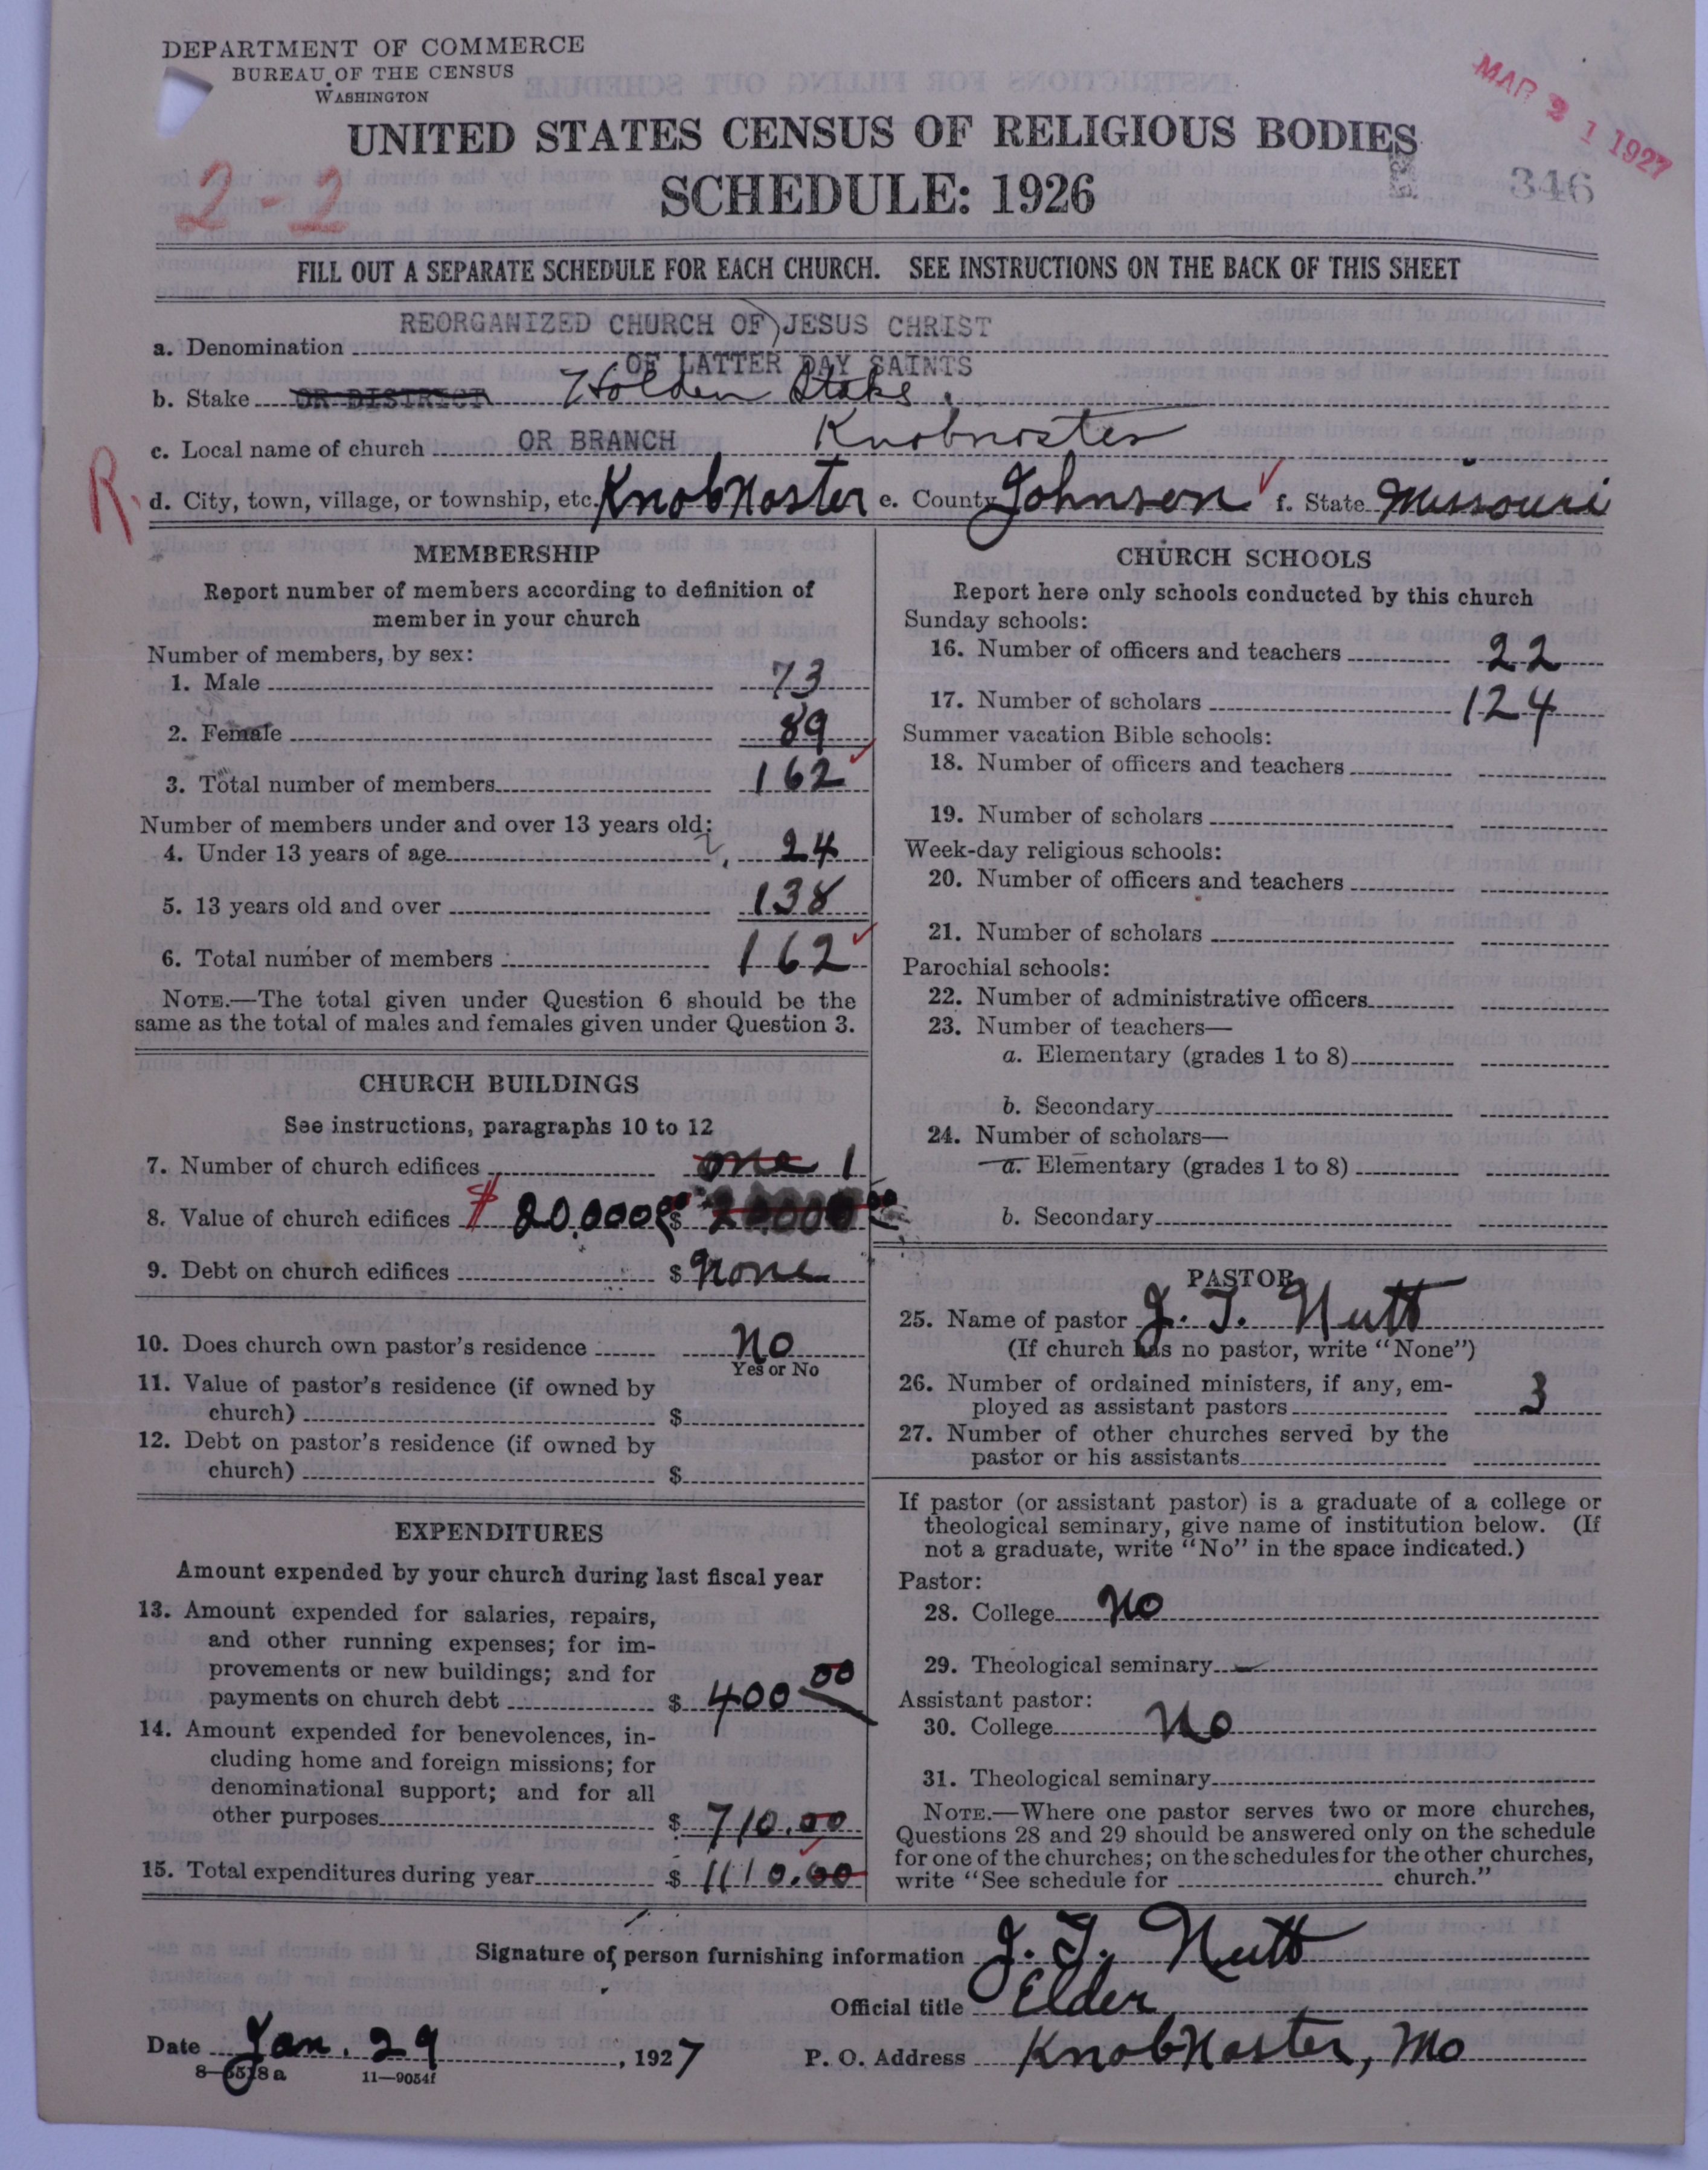 DEPARTMENT OF COMMERCE
BUREAU OF THE CENSUS
WASHINGTON
MAR 21 1927
UNITED STATES CENSUS OF RELIGIOUS BODIES
2-2
SCHEDULE: 1926
346
FILL OUT A SEPARATE SCHEDULE FOR EACH CHURCH. SEE INSTRUCTIONS ON THE BACK OF THIS SHEET
REORGANIZED CHURCH OF JESUS CHRIST
a. Denomination
OF LATTER DAY SAINTS
b. Stake OR DISTRICT Holden Stake.
c. Local name of church OR BRANCH Knobnoster
R. d. City, town, village, or township, etc. KnobNoster e. County Johnson f. State Missouri
MEMBERSHIP
Report number of members according to definition of
member in your church
Number of members, by sex:
1. Male 73
2. Female 89
3. Total number of members 162
Number of members under and over 13 years old:
4. Under 13 years of age 24
5. 13 years old and over 138
6. Total number of members 162
NOTE.—The total given under Question 6 should be the
same as the total of males and females given under Question 3.
CHURCH BUILDINGS
See instructions, paragraphs 10 to 12
7. Number of church edifices one 1
8. Value of church edifices $ 20,000 00 $ 20000 00
9. Debt on church edifices $ None
10. Does church own pastor's residence No
Yes or No
11. Value of pastor's residence (if owned by
church) $
12. Debt on pastor's residence (if owned by
church) $
EXPENDITURES
Amount expended by your church during last fiscal year
13. Amount expended for salaries, repairs,
and other running expenses; for im-
provements or new buildings; and for
payments on church debt $ 400 00
14. Amount expended for benevolences, in-
cluding home and foreign missions; for
denominational support; and for all
other purposes $ 710.00
15. Total expenditures during year $ 1110.00
CHURCH SCHOOLS
Report here only schools conducted by this church
Sunday schools:
16. Number of officers and teachers 22
17. Number of scholars 124
Summer vacation Bible schools:
18. Number of officers and teachers
19. Number of scholars
Week-day religious schools:
20. Number of officers and teachers
21. Number of scholars
Parochial schools:
22. Number of administrative officers
23. Number of teachers—
a. Elementary (grades 1 to 8)
b. Secondary
24. Number of scholars—
a. Elementary (grades 1 to 8)
b. Secondary
PASTOR
25. Name of pastor J. T. Nutt
(If church has no pastor, write "None")
26. Number of ordained ministers, if any, em-
ployed as assistant pastors 3
27. Number of other churches served by the
pastor or his assistants
If pastor (or assistant pastor) is a graduate of a college or
theological seminary, give name of institution below. (If
not a graduate, write "No" in the space indicated.)
Pastor:
28. College No
29. Theological seminary
Assistant pastor:
30. College No
31. Theological seminary
NOTE.—Where one pastor serves two or more churches,
Questions 28 and 29 should be answered only on the schedule
for one of the churches; on the schedules for the other churches,
write "See schedule for church."
Signature of person furnishing information J. T. Nutt
Official title Elder
Date Jan. 29, 1927 P. O. Address KnobNoster, Mo
8-5518a 11—9054f